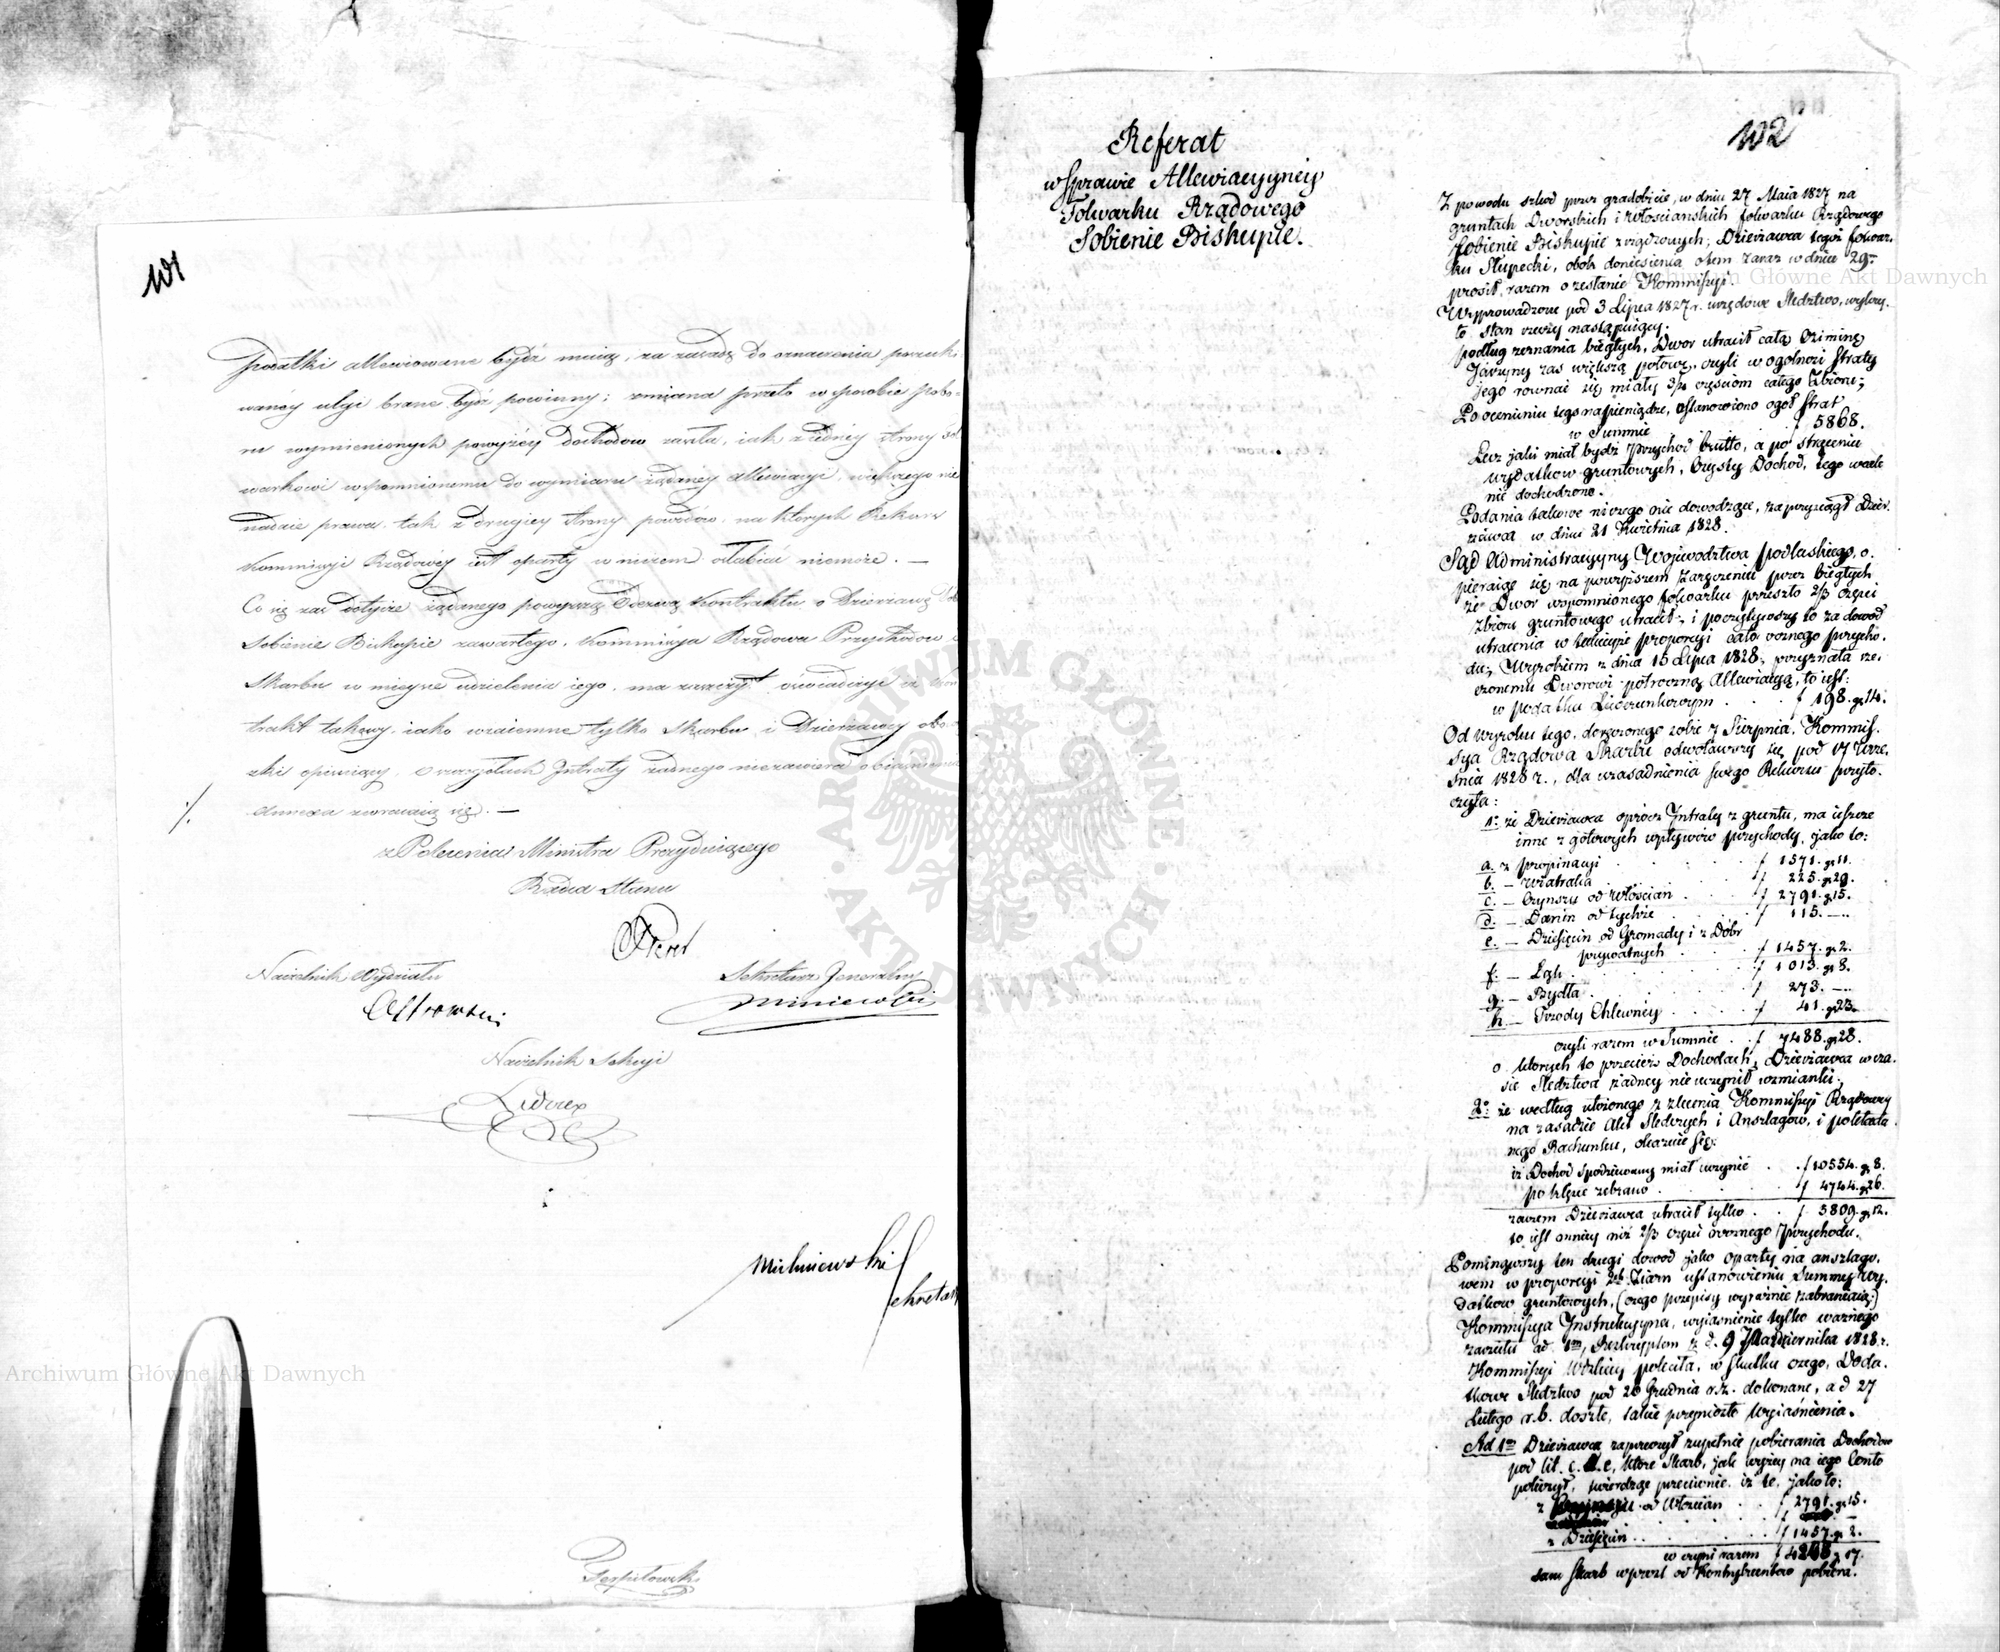 101
podatki allewiowane bydź maią, za zasadę do oznaczenia poszuki
waney ulgi brane bydź powinny; zmiana przeto w sposobie pobo-
ru wymienionych powyżéy dochodów zaszła, iak z iedney strony fol
warkowi wspomnionemu do wymiaru żądanéy allewiacyi, większego nie
nadaie prawa, tak z drugiey strony powodów, na których Rekurs
Kommissyi Rządowéy iest oparty w niczem osłabiać niemoże. —
Co się zaś dotycze żądanego powyższą Odezwą Kontraktu o Dzierżawę Dóbr
Sobienie Biskupie zawartego, Kommissya Rządowa Przychodów i
Skarbu w mieysce udzielenia iego, ma zaszczyt oświadczyć iż Kon
trakt takowy, iako wzaiemne tylko Skarbu i Dzierżawcy obo
zki opiewaiący, o szczegółach Intraty żadnego niezawiera obiaśnienia
Annexa zwracaią się. —
z Polecenia Ministra Prezyduiącego
Radca Stanu
Naczelnik Wydziału
Sekretarz Jeneralny
Naczelnik Sekcyi
Michniewski
Sekretarz
102
Referat
w Sprawie Allewiacyyney
Folwarku Rządowego
Sobienie Biskupie.
Z powodu szkód przez gradobicie, w dniu 27 Maia 1827 na
gruntach Dworskich i Włościańskich folwarku Rządowego
Sobienie Biskupie zrządzonych; Dzierżawca tegoż folwar-
ku Słupecki, obok doniesienia o tem zaraz w dniu 29
prosił, razem o zesłanie Kommissyi.
Wyprowadzone pod 3 Lipca 1827 r. urzędowe Śledztwo, wykry-
ło stan rzeczy następuiący:
podług zeznania biegłych, Dwór utracił całą Oziminę
Jarzyny zaś większą połowę, czyli w ogólności Straty
jego równać się miały 3/4 częściom całego Zbioru;
Po ocenieniu tego na pieniądze, ustanowiono ogół Strat
w Summie f 5868.
Lecz jaki miał bydź Przychód brutto, a po strąceniu
wydatków gruntowych, Czysty Dochód, tego wcale
nie dochodzono.
Podania takowe niczego nie dowodzące, zaprzysiągł Dzier-
żawca w dniu 21 Kwietnia 1828.
Sąd Administracyiny Województwa Podlaskiego, o-
pieraiąc się na powyższem zaręczeniu przez biegłych
że Dwór wspomnionego folwarku przeszło 2/3 części
Zbioru gruntowego utracił, i poczytywszy to za dowód
utracenia w teiże proporcyi cało rocznego przycho-
du; Wyrokiem z dnia 15 Lipca 1828, przyznała rze-
czonemu Dworowi półroczną Allewiacyą, to iest:
w podatku Liwerunkowym . . . f 198. gr 14.
Od wyroku tego, doręczonego sobie 7 Sierpnia, Kommis-
sya Rządowa Skarbu odwoławszy się pod 17 Wrze-
śnia 1828 r., dla uzasadnienia swego Rekursu przyto-
czyła:
1o że Dzierżawca oprócz Intraty z gruntu, ma ieszcze
inne z gotowych wpływów przychody, jako to:
a. z propinacyi . . . f 1571. gr 11.
b. — Wiatraka . . . f 225. gr 29.
c. — Czynszu od Włościan . . . f 2791. gr 15.
d. — Danin od tychże . . . f 115. —
e. — Dziesięcin od Gromady i z Dóbr
prywatnych . . . f 1457. gr 2.
f. — Łąk . . . f 1013. gr 8.
g. — Bydła . . . f 273. —
h. — Trzody Chlewney . . . f 41. gr 23.
czyli razem w Summie . f 7488. gr 28.
o których to przecież Dochodach, Dzierżawca w cza-
sie Śledztwa żadney nie uczynił wzmianki.
2o że według ułożonego z zlecenia Kommissyi Rządowey
na zasadzie Akt Śledczych i Anszlagów, i poleta da-
nego Rachunku, okazuie się:
iż Dochód Spodziewany miał uczynić . . f 10554. gr 8.
po klęsce zebrano . . . f 4744. gr 26.
zatem Dzierżawca utracił tylko . . f 5809. gr 12.
to iest mniey niż 2/3 części rocznego Przychodu.
Pominąwszy ten drugi dowód jako oparty na anszlago-
wem w proporcyi Ziarn ustanowieniu Summy Wy-
datków gruntowych, (czego przepisy wyraźnie zabraniaią;)
Kommissya Instrukcyjna, wyjaśnienie tylko ważnego
zarzutu ad 1m, Reskryptem z d. 9 Października 1828 r.
Kommissyi Wdzkiey poleciła, w skutku czego, Doda-
tkowe Śledztwo pod 20 Grudnia r.z. dokonane, a d 27
Lutego r.b. doszłe, takie przyniosło Wyiaśnienia.
Ad 1m Dzierżawca zaprzeczył zupełnie pobierania Dochodów
pod lit. c. d. e, które Skarb, jak wyżey na iego Conto
policzył, twierdząc przeciwnie, iż te, jako to:
z od Włościan . . . f 2791. gr 15.
z Dziesięcin . . . f 1457. gr 2.
w czyni razem f 4248 gr 17.
sam Skarb wprost od Kontrybuentów pobiera.